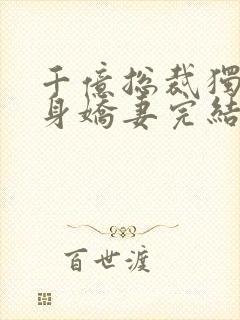 千億总裁獨
身嬌妻完結
百世渡